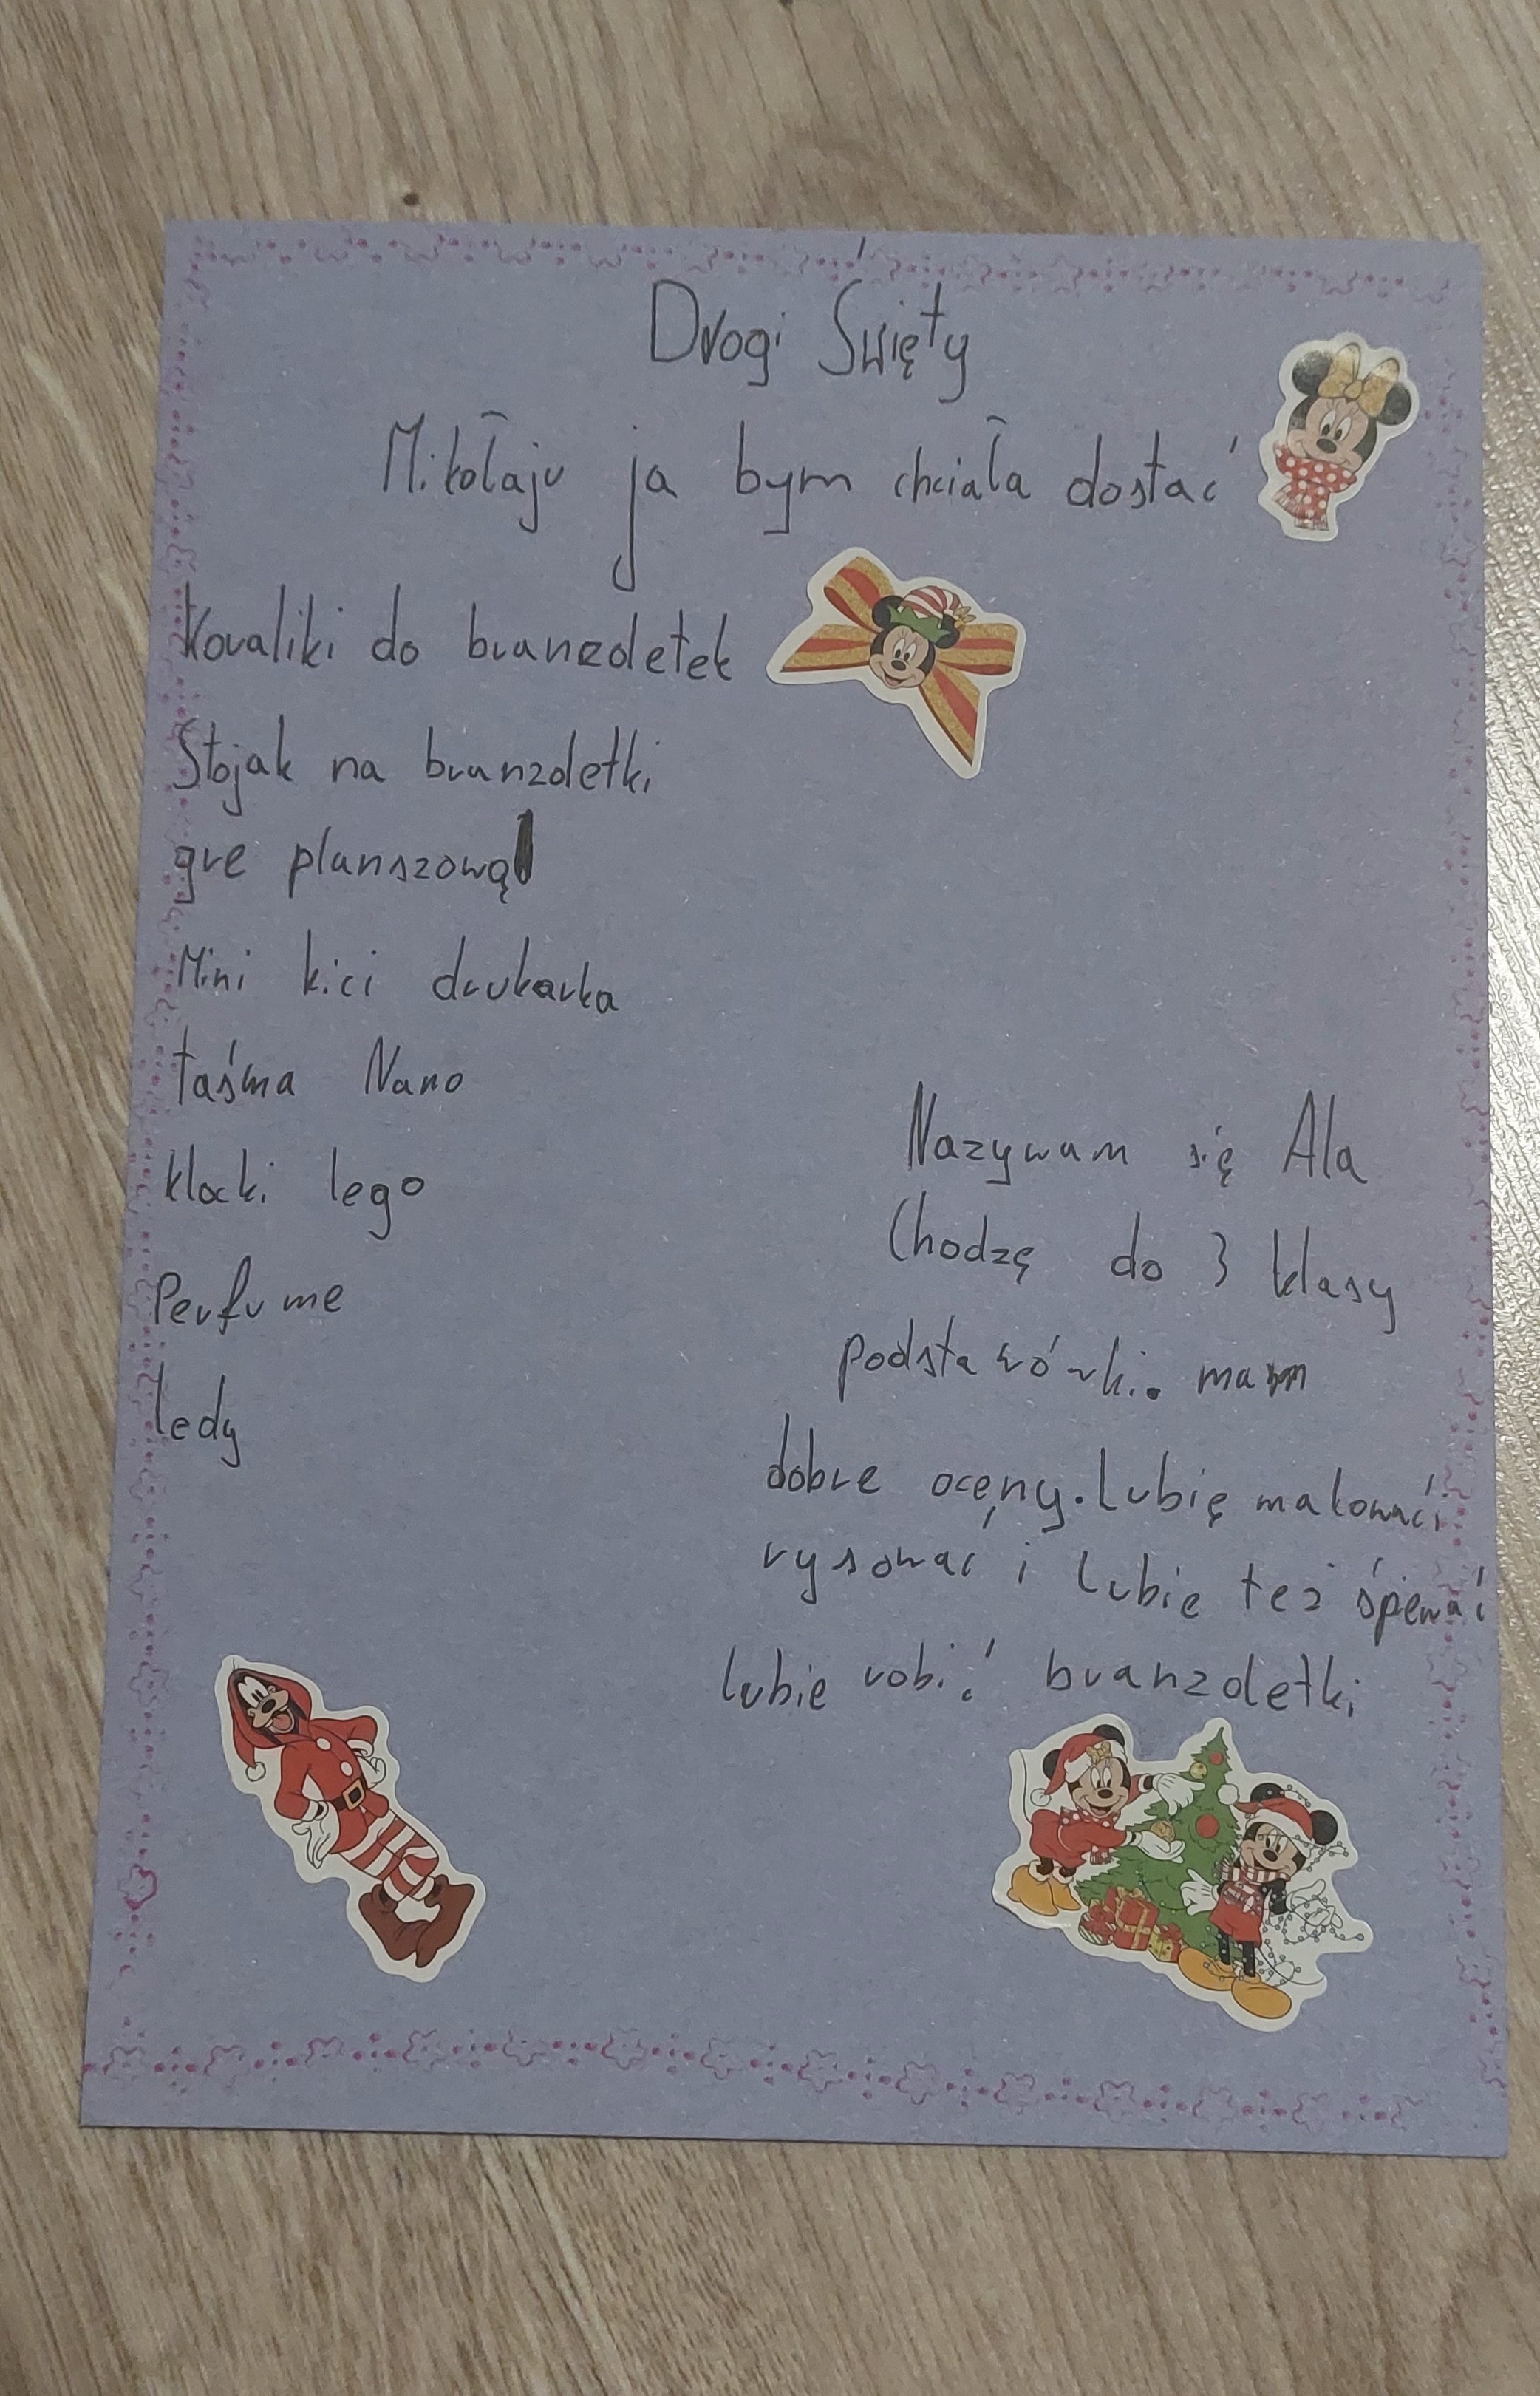 Drogi Święty
Mikołaju ja bym chciała dostać
koraliki do branzoletek
Stojak na branzoletki
gre planszową
Mini kici drukarka
taśma Nano
klocki lego
Perfume
ledy
Nazywam się Ala
Chodzę do 3 klasy
podstawówki. mam
dobre oceny. Lubię malować i
rysować i lubie też śpewać
lubie robić branzoletki